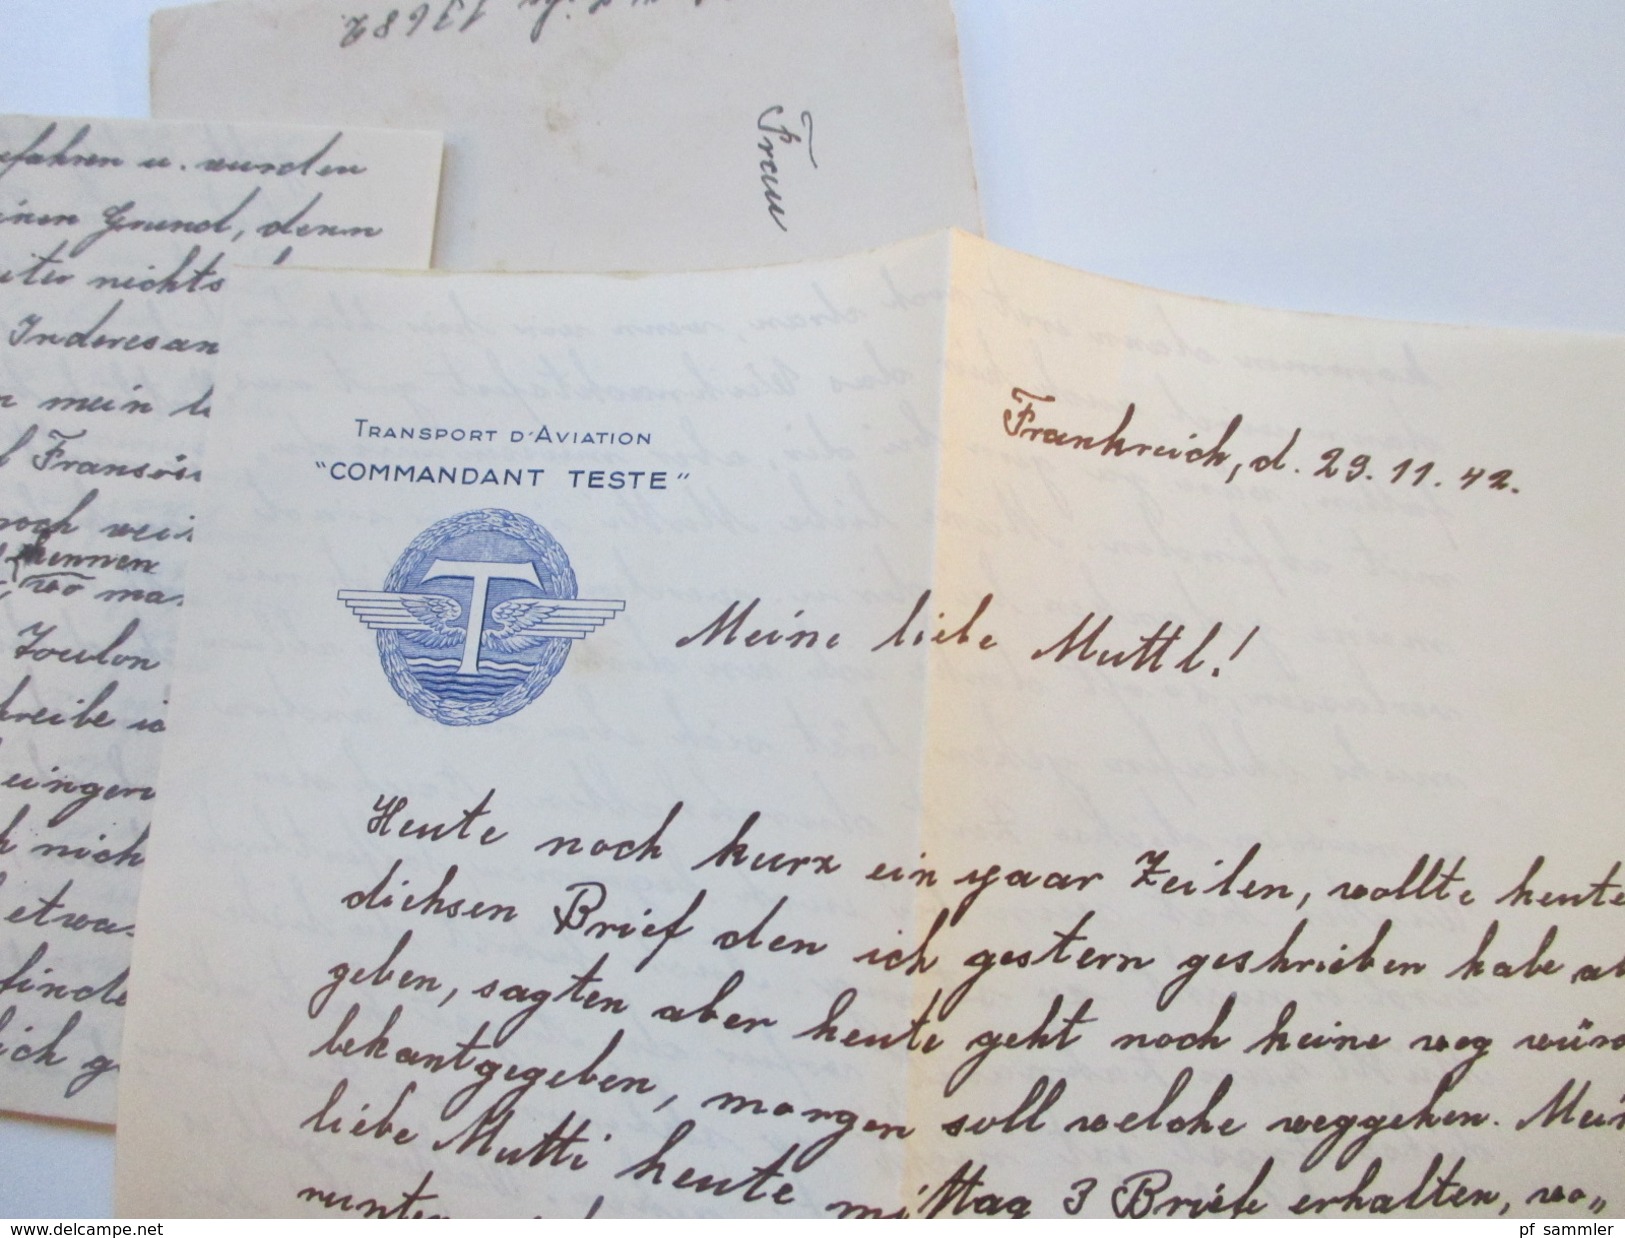 1368
Frau
efahren u. wurden
einen Grund, denn
eiter nichts
Inderesan
n mein l
l Fransös
noch wei
kennen
wo ma
Toulon
hreibe ic
eingen
h nich
etwa
finde
ich g
TRANSPORT D'AVIATION
"COMMANDANT TESTE"
T
Frankreich, d. 29.11.42.
Meine liebe Muttl!
Heute noch kurz ein paar Zeilen, wollte heute
dichsen Brief den ich gestern geshrieben habe ab
geben, sagten aber heute geht noch keine weg würd
bekantgegeben, morgen soll welche weggehen. Mein
liebe Mutti heute mittag 3 Briefe erhalten, wo„
runter
www.delcampe.net
pf_sammler